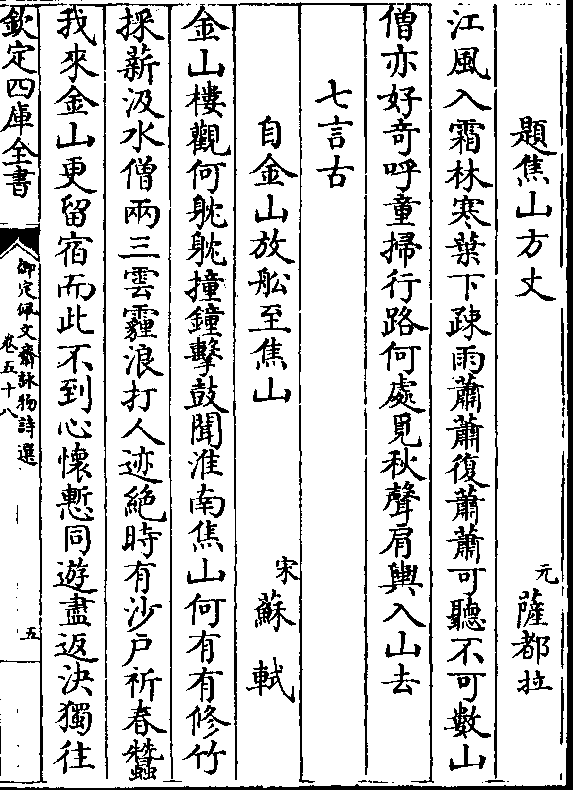 題焦山方丈 元 薩都拉
江風入霜林寒葉下疎雨蕭蕭復蕭蕭可聽不可數山
僧亦好竒呼童掃行路何處覓秋聲肩輿入山去
七言古
自金山放舩至焦山 宋 蘇軾
金山樓觀何躭躭撞鐘擊鼓聞淮南焦山何有有修竹
採薪汲水僧兩三雲霾浪打人迹絕時有沙戶祈春蠶
我來金山更留宿而此不到心懷慙同遊盡返決獨往
欽定四庫全書
御定佩文齋詠物詩選
卷五十八
五